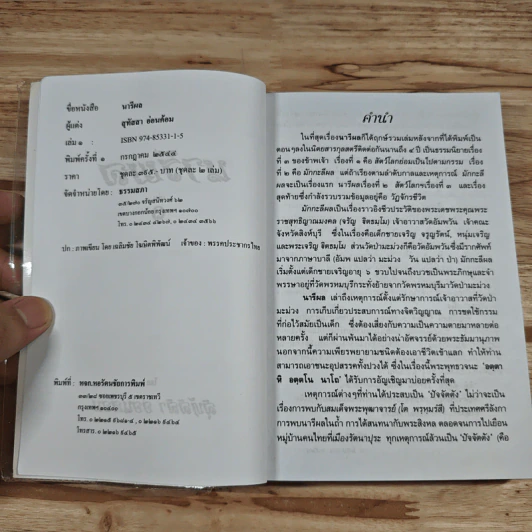 ชื่อหนังสือ นารีผล
ผู้แต่ง สุทัสสา อ่อนค้อม
เล่ม ๑ : ISBN 974-85331-1-5
พิมพ์ครั้งที่ ๑ กรกฎาคม ๒๕๔๔
ราคา ชุดละ ๓๖๕.- บาท (ชุดละ ๒ เล่ม)
จัดจำหน่ายโดย: ธรรมสภา
เขตบางกอกน้อย กรุงเทพฯ ๑๐๗๐๐
ปก : ภาพเขียน โดย เฉลิมชัย โฆษิตพิพัฒน์ เจ้าของ : พรรคประชากรไทย
พิมพ์ที่ : หจก.พลรัตนชัยการพิมพ์
กรุงเทพฯ ๑๐๔๐๐
คำนำ
ในที่สุดเรื่องนารีผลก็ได้ฤกษ์รวมเล่มหลังจากที่ได้พิมพ์เป็น
ตอนๆลงในนิตยสารกุลสตรีติดต่อกันนานถึง ๔ ปี เป็นธรรมนิยายเรื่อง
ที่ ๓ ของข้าพเจ้า เรื่องที่ ๑ คือ สัตว์โลกย่อมเป็นไปตามกรรม เรื่อง
ที่ ๒ คือ มักกะลีผล แต่ถ้าเรียงตามลำดับกาลและเหตุการณ์ มักกะลี
ผลจะเป็นเรื่องแรก นารีผลเรื่องที่ ๒ สัตว์โลกฯเรื่องที่ ๓ และเรื่อง
สุดท้ายซึ่งกำลังรวบรวมข้อมูลอยู่คือ วัฏจักรชีวิต
มักกะลีผลเป็นเรื่องราวอิงชีวประวัติของพระเดชพระคุณพระ
ราชสุทธิญาณมงคล (จรัญ ฐิตธมฺโม) เจ้าอาวาสวัดอัมพวัน เจ้าคณะ
จังหวัดสิงห์บุรี ซึ่งในเรื่องคือเด็กชายเจริญ จรูญรัตน์, หนุ่มเจริญ
และพระเจริญ ฐิตธมฺโม ส่วนวัดป่ามะม่วงก็คือวัดอัมพวันซึ่งมีรากศัพท์
มาจากภาษาบาลี (อัมพ แปลว่า มะม่วง วัน แปลว่า ป่า) มักกะลีผล
เริ่มตั้งแต่เด็กชายเจริญอายุ ๖ ขวบไปจนถึงบวชเป็นพระภิกษุและจำ
พรรษาอยู่ที่วัดพรหมบุรีกระทั่งย้ายจากวัดพรหมบุรีมาวัดป่ามะม่วง
นารีผล เล่าถึงเหตุการณ์ตั้งแต่รักษาการณ์เจ้าอาวาสที่วัดป่า
มะม่วง การเก็บเกี่ยวประสบการณ์ทางจิตวิญญาณ การชดใช้กรรม
ที่ก่อไว้สมัยเป็นเด็ก ซึ่งต้องเสี่ยงกับความเป็นความตายมาหลายต่อ
หลายครั้ง แต่ก็ผ่านพ้นมาได้อย่างน่าอัศจรรย์ด้วยพระธัมมานุภาพ
นอกจากนี้ความเพียรพยายามชนิดต้องเอาชีวิตเข้าแลก ทำให้ท่าน
สามารถเอาชนะอุปสรรคทั้งปวงได้ ซึ่งในเรื่องนี้พระพุทธวจนะ 'อตฺตา
หิ อตฺตโน นาโถ' ได้รับการอัญเชิญมาบ่อยครั้งที่สุด
เหตุการณ์ต่างๆที่ท่านได้ประสบเป็น 'ปัจจัตตัง' ไม่ว่าจะเป็น
เรื่องการพบกับสมเด็จพระพุฒาจารย์ (โต พฺรหฺมรํสี) ที่ประเทศศรีลังกา
การพบนารีผลในถ้ำ การได้สนทนากับพระสิงหล ตลอดจนการไปเยือน
หมู่บ้านคนไทยที่เมืองรัตนาปุระ ทุกเหตุการณ์ล้วนเป็น 'ปัจจัตตัง' (คือ